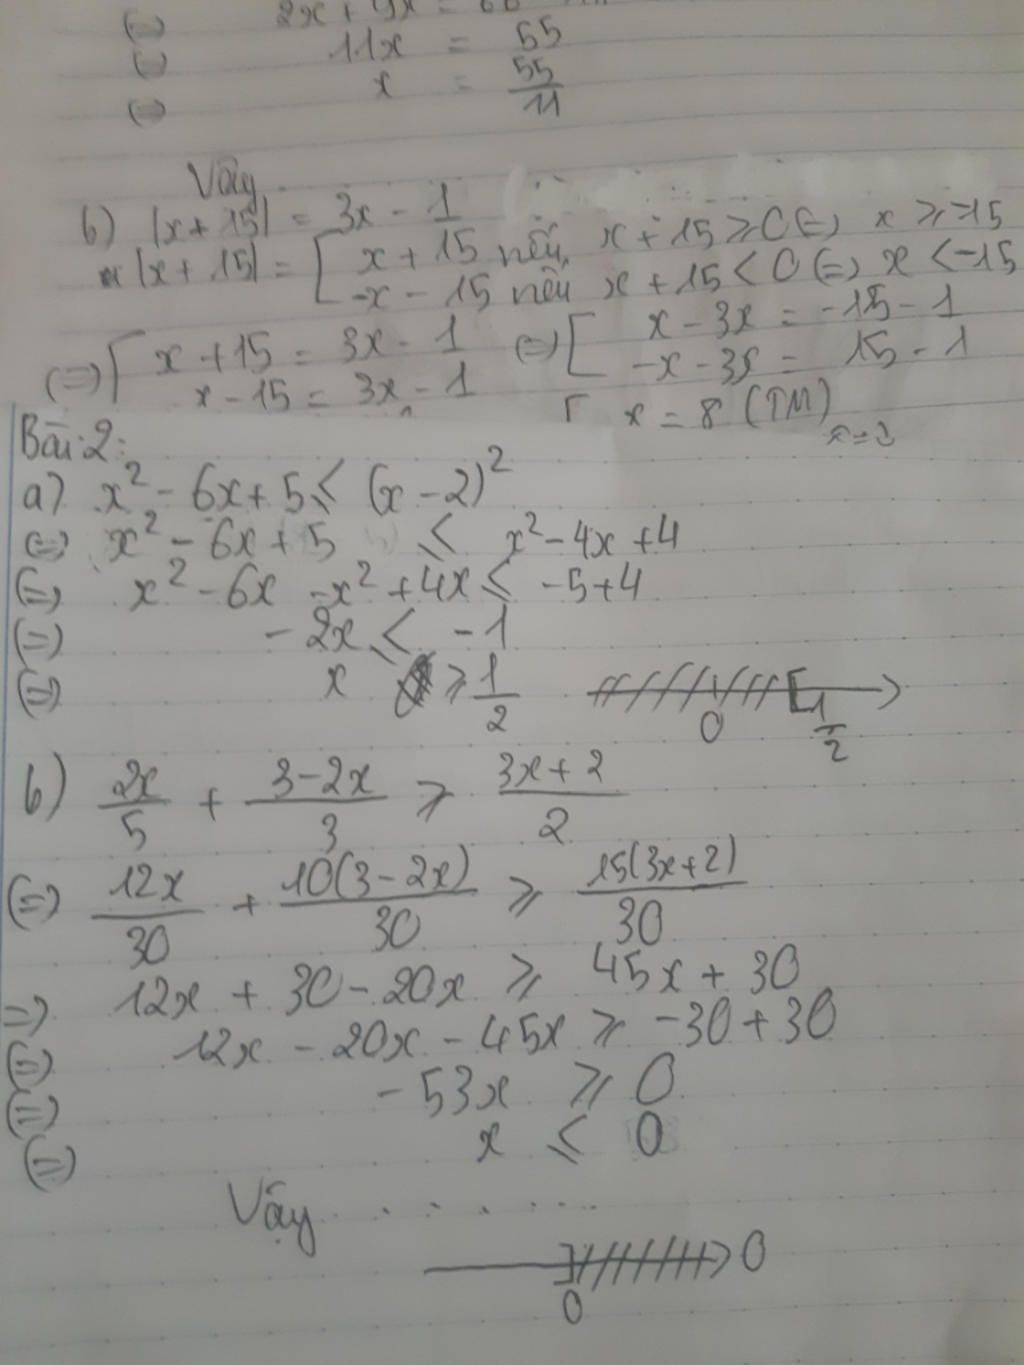 (=) 2x + 9x =
(=) 11x = 55
(=) x = 55/11
Vậy
b) |x + 15| = 3x - 1
|x + 15| = [ x + 15 nếu x + 15 ⩾ 0 (=) x ⩾ -15
-x - 15 nếu x + 15 < 0 (=) x < -15
(=) [ x + 15 = 3x - 1 (=) [ x - 3x = -15 - 1
x - 15 = 3x - 1 -x - 3x = 15 - 1
[ x = 8 (TM)
Bài 2:
a) x² - 6x + 5 ⩽ (x - 2)²
(=) x² - 6x + 5 ⩽ x² - 4x + 4
(=) x² - 6x - x² + 4x ⩽ -5 + 4
(=) - 2x ⩽ - 1
(=) x ⩾ 1/2
0 [ 1/2
b) 2x/5 + 3-2x/3 ⩾ 3x+2/2
(=) 12x/30 + 10(3-2x)/30 ⩾ 15(3x+2)/30
=) 12x + 30 - 20x ⩾ 45x + 30
(=) 12x - 20x - 45x ⩾ -30 + 30
(=) - 53x ⩾ 0
(=) x ⩽ 0
Vậy . . . . . .
] 0
0